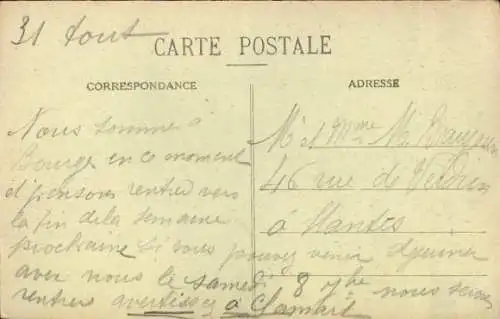 31 Aout
CARTE POSTALE
CORRESPONDANCE
ADRESSE
Nous somme à
Bourge en ce moment
et pensons rentrer vers
la fin de la semaine
prochaine Si vous pouvez venir déjeuner
avec nous le samedi 8 7bre nous serons
rentrer avertissez à Clamart
Mr et Mme M.
46 rue de Verdun
à Nantes